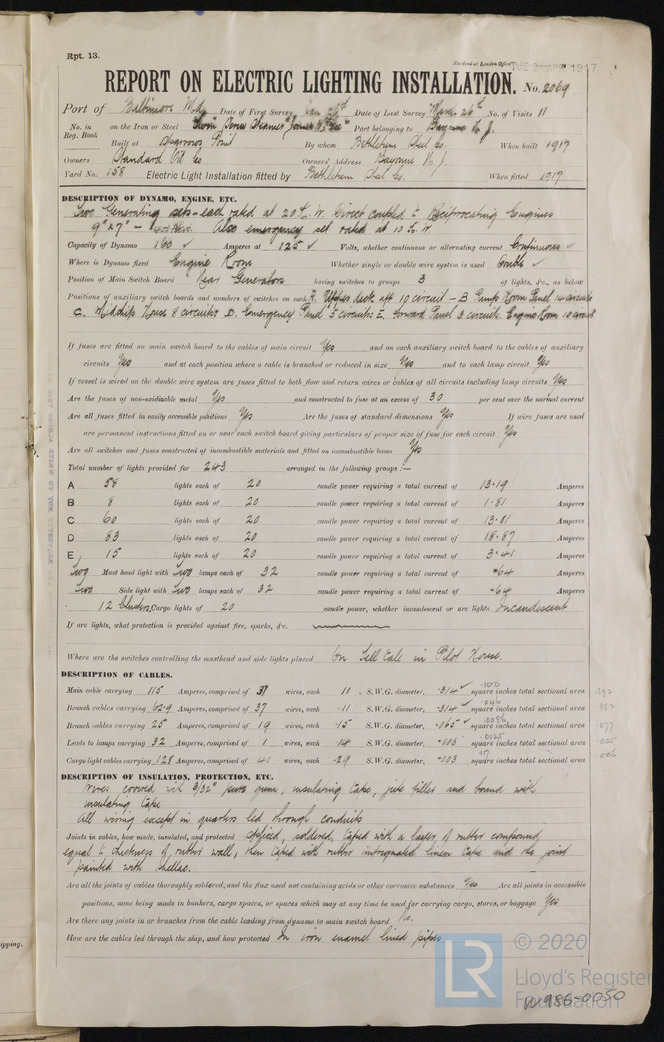 Rpt. 13.
Received at London Office
1917
REPORT ON ELECTRIC LIGHTING INSTALLATION. No. 2069
Port of Baltimore Md. Date of First Survey Date of Last Survey No. of Visits 11
No. in Reg. Book on the Iron or Steel Twin Screw Steamer Port belonging to Bayonne N. J.
Built at Sparrows Point By whom Bethlehem Steel Co. When built 1917
Owners Standard Oil Co Owners' Address Bayonne N. J.
Yard No. 158 Electric Light Installation fitted by Bethlehem Steel Co. When fitted 1917
DESCRIPTION OF DYNAMO, ENGINE, ETC.
Two Generating sets - each rated at 20 K.W. Direct coupled to Reciprocating Engines
9" x 7" - Also emergency set rated at 10 K.W
Capacity of Dynamo 160 ✓ Amperes at 125 ✓ Volts, whether continuous or alternating current Continuous ✓
Where is Dynamo fixed Engine Room Whether single or double wire system is used Double ✓
Position of Main Switch Board Near Generators having switches to groups 3 of lights, &c., as below
Positions of auxiliary switch boards and numbers of switches on each A. Upper deck aft 10 circuit - B Pump Room Panel circuits
C. Midship House 8 circuits: D. Emergency Panel 5 circuits: E. Forward Panel 3 circuits Engine Room 10 circuit
If fuses are fitted on main switch board to the cables of main circuit Yes and on each auxiliary switch board to the cables of auxiliary
circuits Yes and at each position where a cable is branched or reduced in size Yes and to each lamp circuit Yes
If vessel is wired on the double wire system are fuses fitted to both flow and return wires or cables of all circuits including lamp circuits Yes
Are the fuses of non-oxidizable metal Yes and constructed to fuse at an excess of 30 per cent over the normal current
Are all fuses fitted in easily accessible positions Yes Are the fuses of standard dimensions Yes If wire fuses are used
are permanent instructions fitted on or near each switch board giving particulars of proper size of fuse for each circuit Yes
Are all switches and fuses constructed of incombustible materials and fitted on incombustible bases Yes
Total number of lights provided for 243 arranged in the following groups :—
A 58 lights each of 20 candle power requiring a total current of 13.19 Amperes
B 8 lights each of 20 candle power requiring a total current of 1.81 Amperes
C 60 lights each of 20 candle power requiring a total current of 13.81 Amperes
D 83 lights each of 20 candle power requiring a total current of 18.87 Amperes
E 15 lights each of 20 candle power requiring a total current of 3.41 Amperes
Two Mast head light with Two lamps each of 32 candle power requiring a total current of .64 Amperes
Two Side light with Two lamps each of 32 candle power requiring a total current of .64 Amperes
12 Clusters Cargo lights of 20 candle power, whether incandescent or arc lights Incandescent
If arc lights, what protection is provided against fire, sparks, &c.
Where are the switches controlling the masthead and side lights placed On Tell Tale in Pilot House.
DESCRIPTION OF CABLES.
Main cable carrying 115 Amperes, comprised of 37 wires, each 11 S.W.G. diameter, .314 ✓ .100 square inches total sectional area
Branch cables carrying 62.9 Amperes, comprised of 37 wires, each 11 S.W.G. diameter, .314 ✓ square inches total sectional area
Branch cables carrying 25 Amperes, comprised of 19 wires, each 15 S.W.G. diameter, .065 ✓ square inches total sectional area
Leads to lamps carrying 32 Amperes, comprised of 1 wires, each 14 S.W.G. diameter, .003 square inches total sectional area
Cargo light cables carrying 128 Amperes, comprised of 41 wires, each 29 S.W.G. diameter, .003 square inches total sectional area
DESCRIPTION OF INSULATION, PROTECTION, ETC.
Wires covered with 3/32" pure gum, insulating tape, jute filler and bound with
insulating tape
All wiring except in quarters led through conduits
Joints in cables, how made, insulated, and protected spliced, soldered, taped with a layer of rubber compound
equal to thickness of rubber wall, then taped with rubber impregnated linen tape and the joint
painted with shellac.
Are all the joints of cables thoroughly soldered, and the flux used not containing acids or other corrosive substances Yes Are all joints in accessible
positions, none being made in bunkers, cargo spaces, or spaces which may at any time be used for carrying cargo, stores, or baggage Yes
Are there any joints in or branches from the cable leading from dynamo to main switch board No.
How are the cables led through the ship, and how protected In iron enamel lined pipes
ipping.
LR © 2020
Lloyd's Register
Foundation
W986-0050